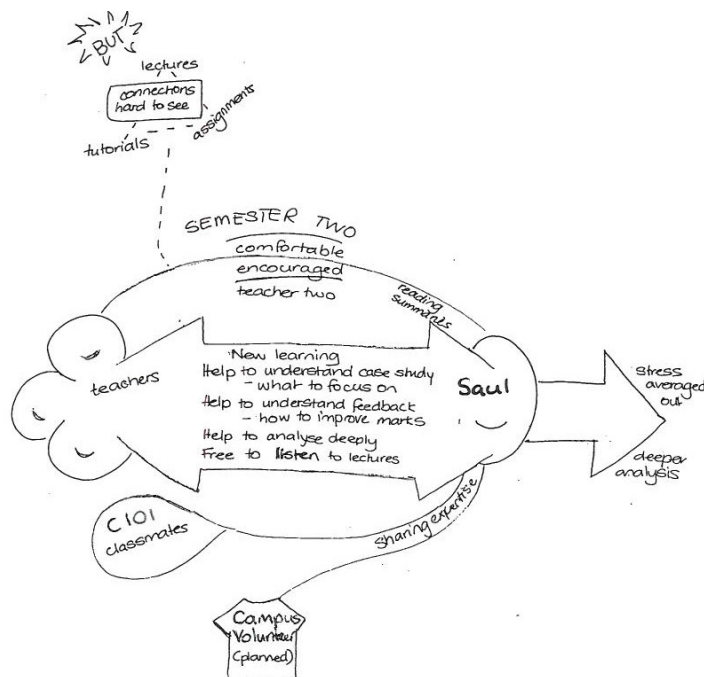 BUT
lectures
connections
hard to see
assignments
tutorials
SEMESTER TWO
comfortable
encouraged
teacher two
reading
summaries
teachers
New learning
Help to understand case study
- what to focus on
Help to understand feedback
- how to improve marks
Help to analyse deeply
Free to listen to lectures
Saul
stress
averaged
out
deeper
analysis
C101
classmates
sharing expertise
Campus
Volunteer
(planned)